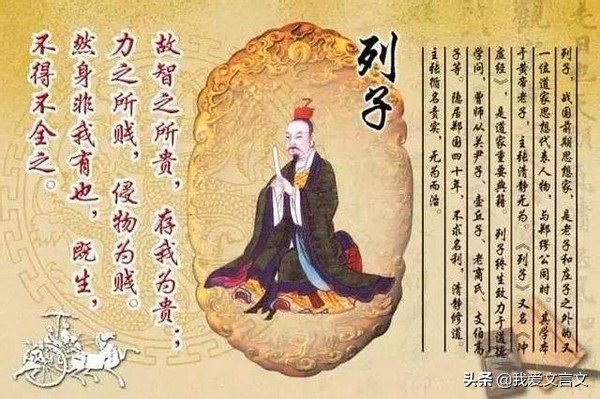 列子，战国前期思想家，是老子和庄子之外的又
一位道家思想代表人物，与郑缪公同时。其学本
于黄帝老子，主张清静无为。《列子》又名《冲
虚经》，是道家重要典籍。列子终生致力于道德
学问，曾师从关尹子、壶丘子、老商氏、支伯高
子等，隐居郑国四十年，不求名利，清静修道。
主张循名责实，无为而治。
列子
故智之所贵，存我为贵；
力之所贱，侵物为贱。
然身非我有也，既生，
不得不全之。
头条 @我爱文言文